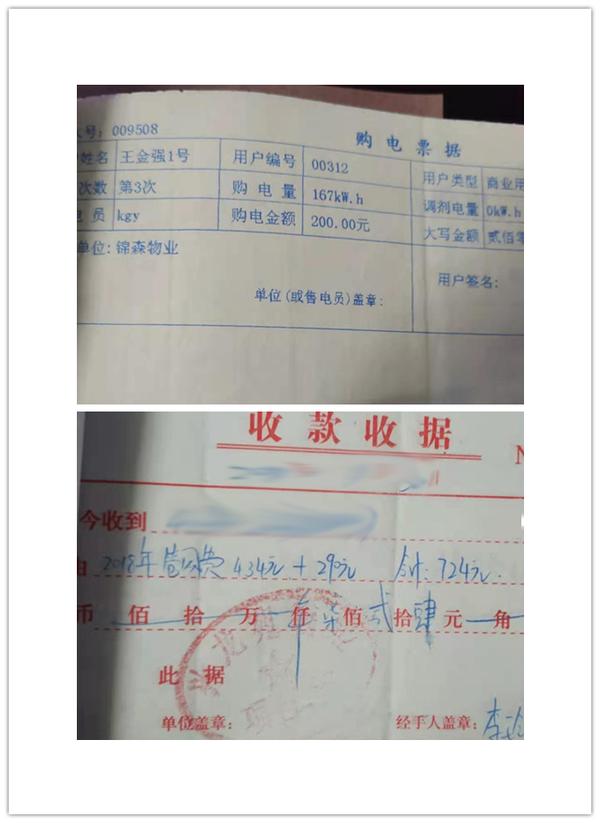 号: 009508
购电票据
姓名 王金强1号 用户编号 00312 用户类型 商业用
次数 第3次 购电量 167kW.h 调剂电量 0kW.h
电员 kgy 购电金额 200.00元 大写金额 贰佰零
单位: 锦森物业
单位(或售电员)盖章: 用户签名:
收款收据
N
今收到
由 2018年 434元 + 290元 合计: 724元
币 佰 拾 万 仟 柒 佰 贰 拾 肆 元 角
此据
单位盖章: 经手人盖章: 李